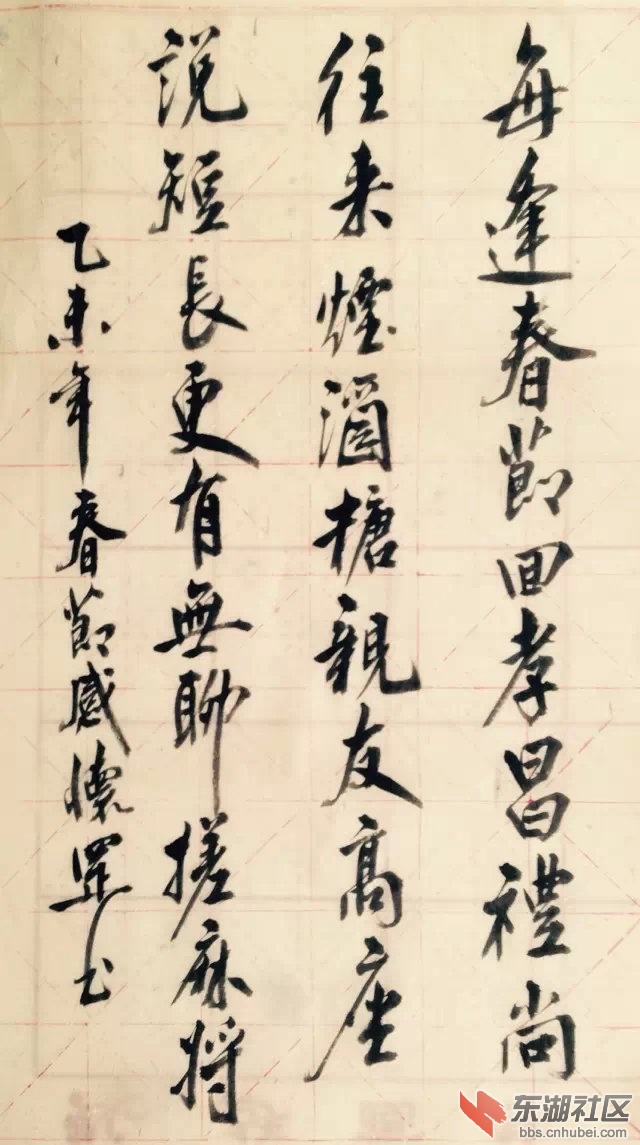 每逢春節回孝昌禮尚
往来煙酒糖親友高座
說短長更有無聊搓麻将
乙未年春節感懷罡书
东湖社区
bbs.cnhubei.com